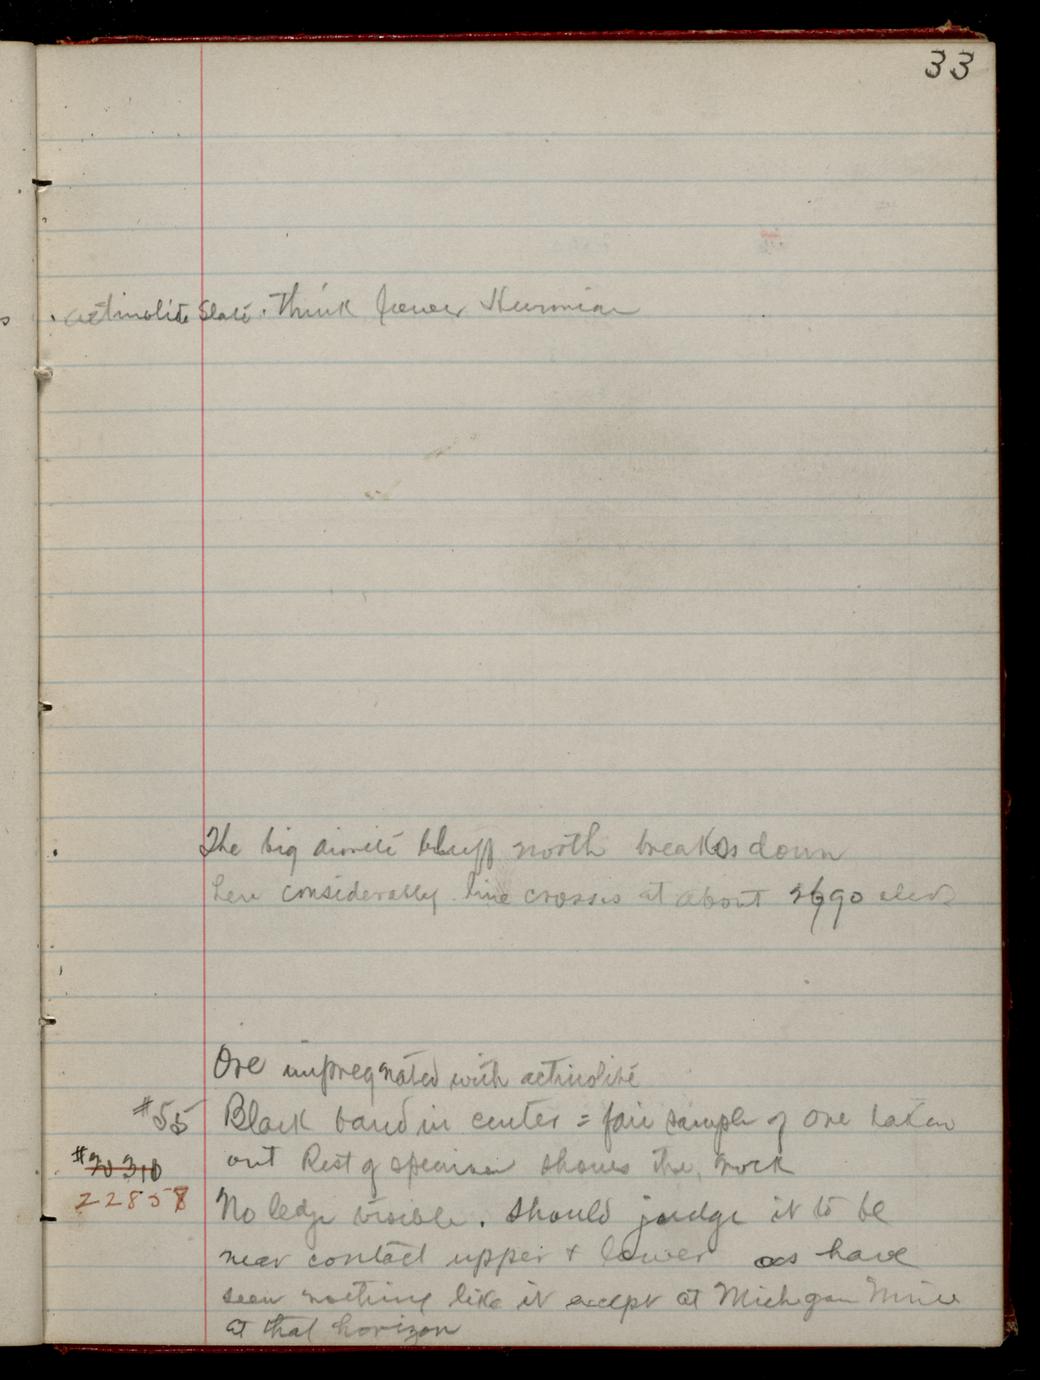 33
actinolite Slate. Think lower Huronian
The big diorite bluff north breaks down
here considerably line crosses at about 2690 elev
Ore impregnated with actinolite
#55 Black band in center = fair sample of ore taken
out Rest of specimen shows the rock
#20310
22858
No ledge visible. Should judge it to be
near contact upper + lower as have
seen nothing like it except at Michigan Mine
at that horizon